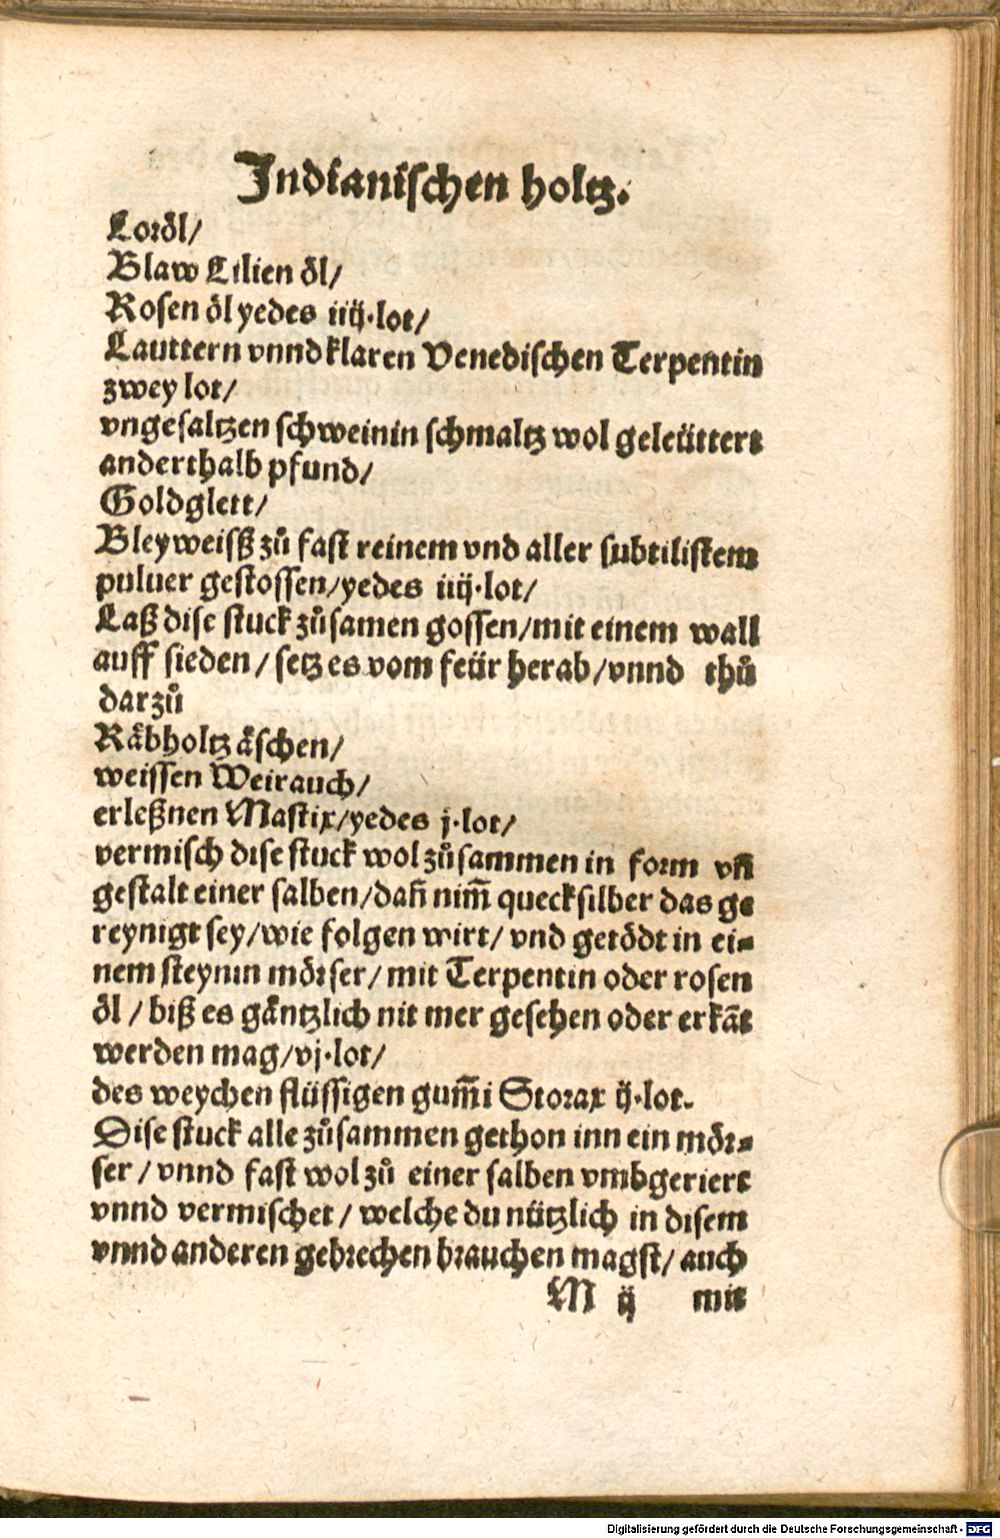 Indianischen holtz.
Loröl/
Blaw Lilien öl/
Rosen öl yedes iiij·lot/
Lauttern vnnd klaren Venedischen Terpentin
zwey lot/
vngesaltzen schweinin schmaltz wol geleüttert
anderthalb pfund/
Goldglett/
Bleyweisß zů fast reinem vnd aller subtilistem
puluer gestossen/yedes iiij·lot/
Laß dise stuck zůsamen gossen/mit einem wall
auff sieden/setz es vom feür herab/vnnd thů
darzů
Räbholtz äschen/
weissen Weirauch/
erleßnen Mastix/yedes j·lot/
vermisch dise stuck wol zůsammen in form vñ
gestalt einer salben/dañ nim̃ quecksilber das ge
reynigt sey/wie folgen wirt/vnd getödt in ei⸗
nem steynin mörser/mit Terpentin oder rosen
öl/biß es gäntzlich nit mer gesehen oder erkãt
werden mag/vj·lot/
des weychen flüssigen gum̃i Storax ij·lot.
Dise stuck alle zůsammen gethon inn ein mör⸗
ser/vnnd fast wol zů einer salben vmbgeriert
vnnd vermischet/welche du nützlich in disem
vnnd anderen gebrechen brauchen magst/auch
M ij mit
Digitalisierung gefördert durch die Deutsche Forschungsgemeinschaft - DFG